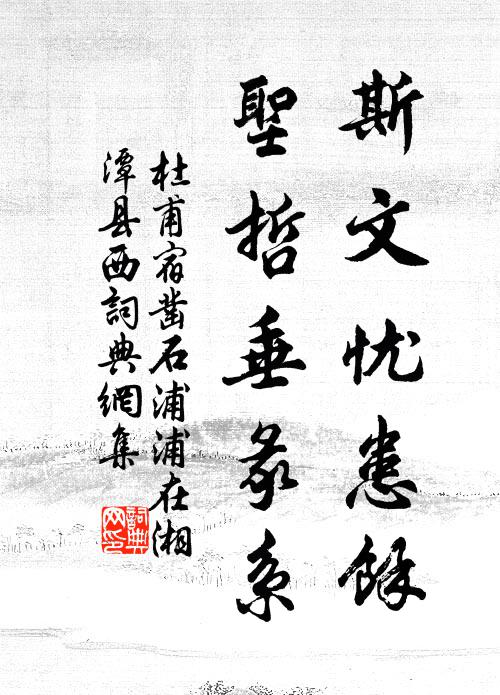 斯文忧患餘
聖哲垂彖系
杜甫宿凿石浦浦在湘
潭县西詞典網集
詞典网印